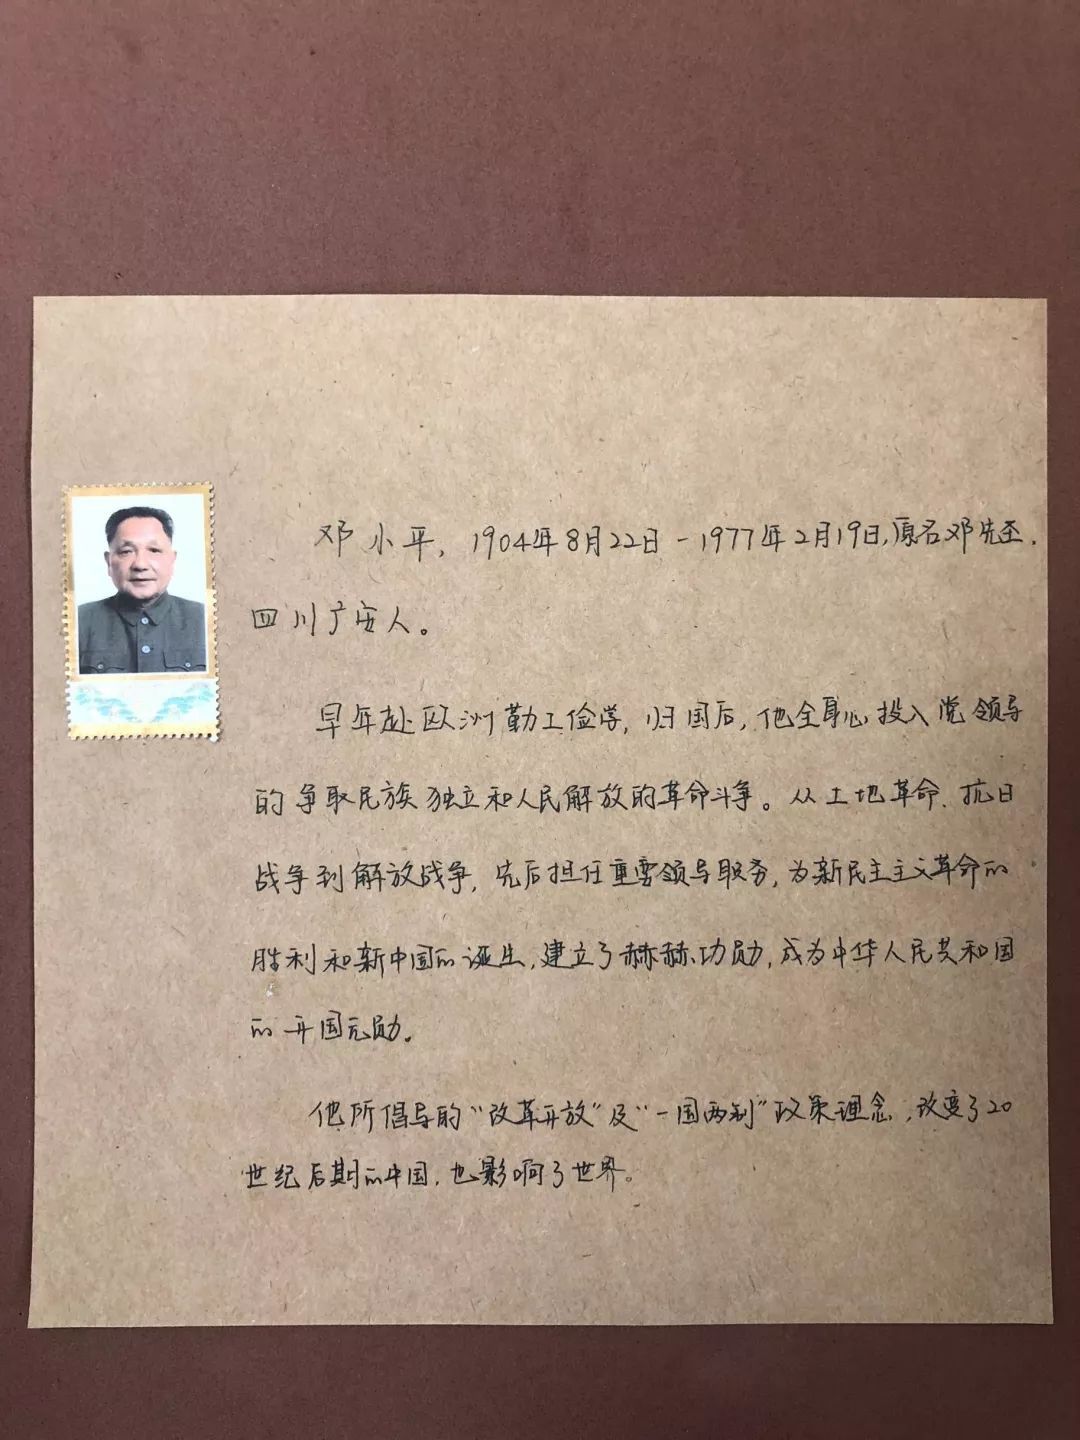 邓小平，1904年8月22日-1977年2月19日，原名邓先圣，
四川广安人。
早年赴欧洲勤工俭学，归国后，他全身心投入党领导
的争取民族独立和人民解放的革命斗争。从土地革命、抗日
战争到解放战争，先后担任重要领导职务，为新民主主义革命的
胜利和新中国的诞生，建立了赫赫功勋，成为中华人民共和国
的开国元勋。
他所倡导的“改革开放”及“一国两制”政策理念，改变了20
世纪后期的中国，也影响了世界。